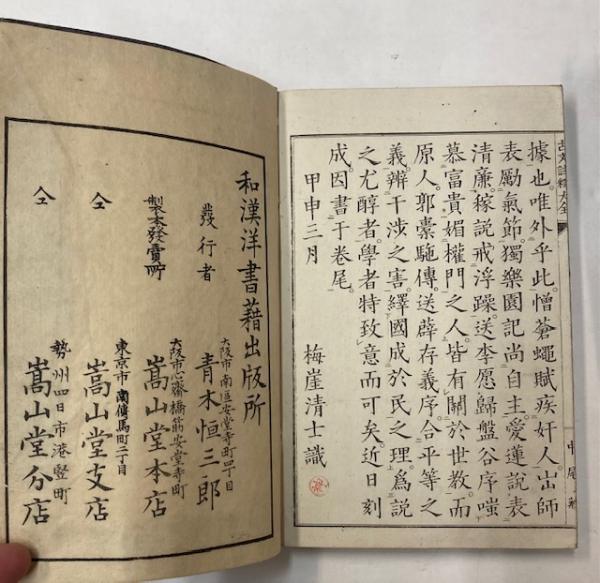 據也。唯外乎此憎蒼蠅賦疾奸人出師
表勵氣節。獨樂園記尚自主。愛蓮説表
清廉。稼説戒浮躁。送李愿歸盤谷序嗤
慕富貴媚權門之人。皆有關於世教。而
原人。郭橐駞傳。送薜存義序。合平等之
義。辨干涉之害。繹國成於民之理。爲説
之尤醇者。學者特致意而可矣。近日刻
成。因書于卷尾。
甲申三月
梅崖清士識
和漢洋書藉出版所
發行者
大阪市南區安堂寺町四丁目
青木恒三郎
製本發賣所
大阪市心齋橋筋安堂寺町
嵩山堂本店
仝
東京市南傳馬町二丁目
嵩山堂支店
仝
勢州四日市港竪町
嵩山堂分店